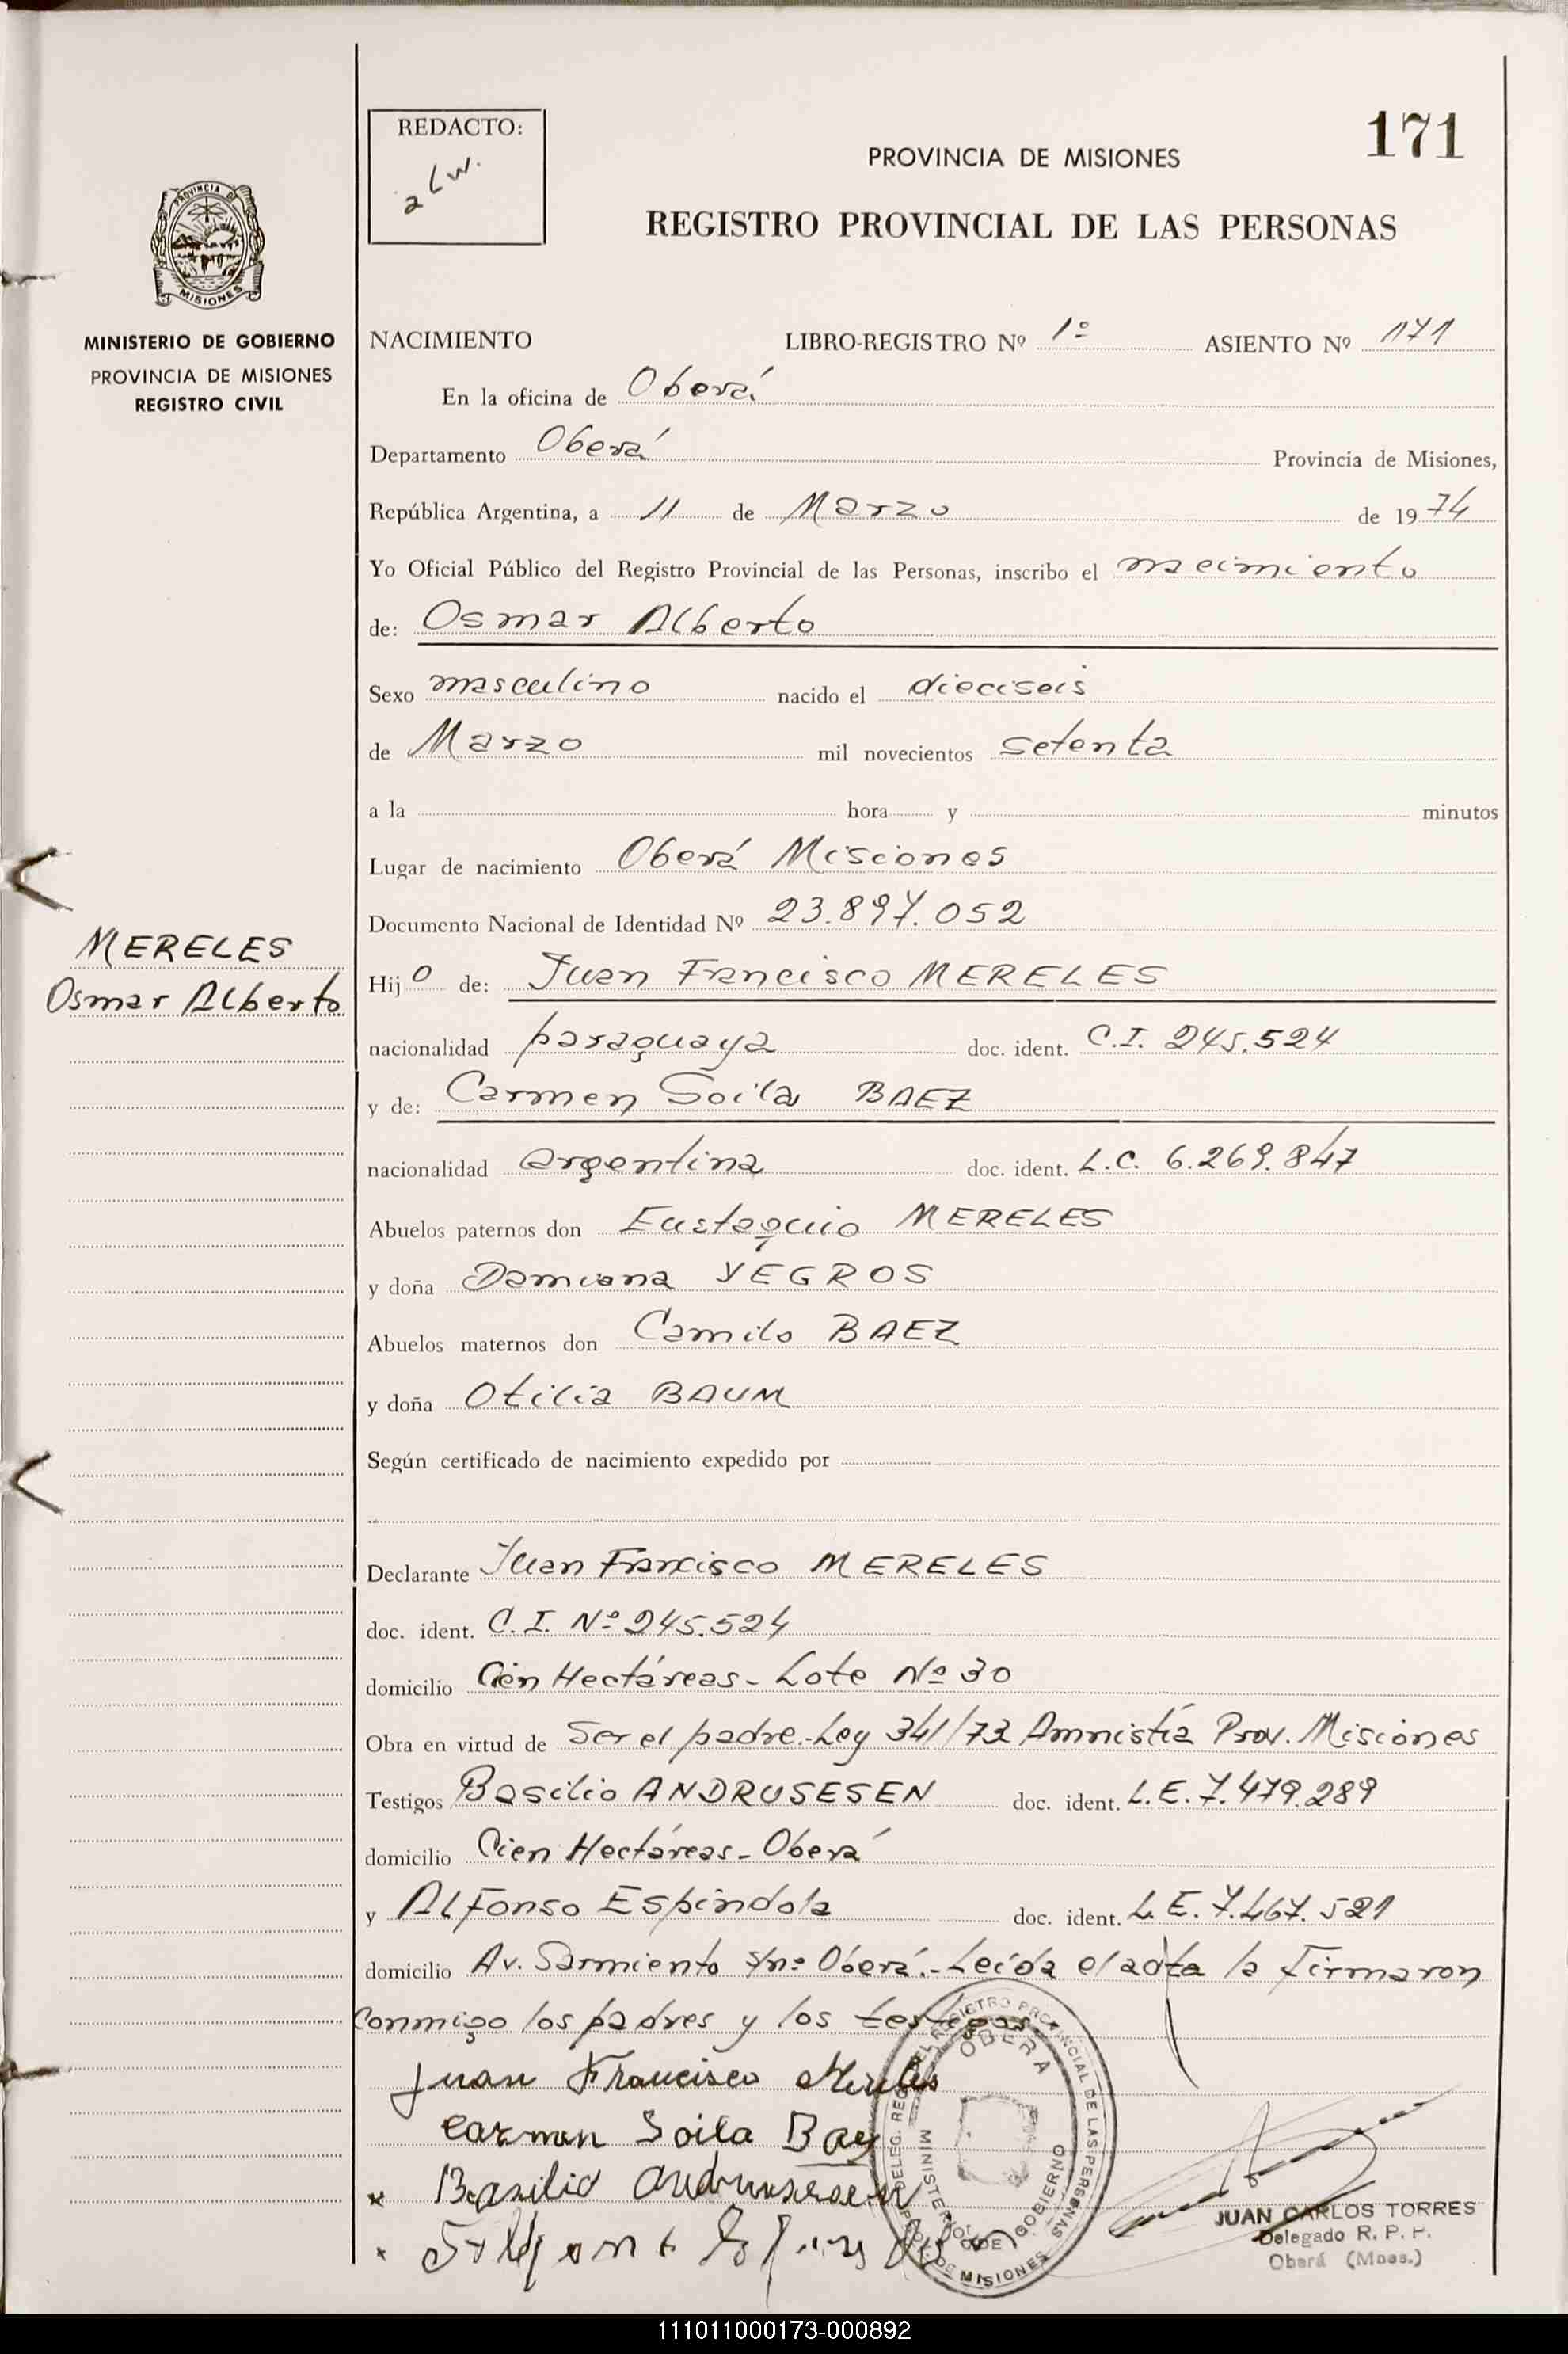 REDACTO:
PROVINCIA DE MISIONES
171
REGISTRO PROVINCIAL DE LAS PERSONAS
PROVINCIA DE
MISIONES
MINISTERIO DE GOBIERNO
PROVINCIA DE MISIONES
REGISTRO CIVIL
NACIMIENTO LIBRO-REGISTRO Nº 1º ASIENTO Nº 171
En la oficina de Oberá
Departamento Oberá Provincia de Misiones,
República Argentina, a 11 de Marzo de 1974
Yo Oficial Público del Registro Provincial de las Personas, inscribo el nacimiento
de: Osmar Alberto
Sexo masculino nacido el dieciseis
de Marzo mil novecientos setenta
a la hora y minutos
Lugar de nacimiento Oberá Misiones
Documento Nacional de Identidad Nº 23.897.052
MERELES
Osmar Alberto
Hijo de: Juan Francisco MERELES
nacionalidad paraguaya doc. ident. C.I. 245.524
y de: Carmen Soila BAEZ
nacionalidad argentina doc. ident. L.C. 6.269.847
Abuelos paternos don Eustaquio MERELES
y doña Damiana YEGROS
Abuelos maternos don Camilo BAEZ
y doña Otilia BAUM
Según certificado de nacimiento expedido por
Declarante Juan Francisco MERELES
doc. ident. C.I. Nº 245.524
domicilio Cien Hectáreas - Lote Nº 30
Obra en virtud de Ser el padre.-Ley 341/72 Amnistía Prov. Misiones
Testigos Basilio ANDRUSESEN doc. ident. L.E. 7.479.289
domicilio Cien Hectáreas - Oberá
y Alfonso Espindola doc. ident. L.E. 7.467.521
domicilio Av. Sarmiento s/nº Oberá.- Leída el acta la firmaron
conmigo los padres y los testigos.
Juan Francisco Mereles
Carmen Soila Baez
x Basilio Andrusesen
x
DELEG. REG. DEL REGISTRO PROVINCIAL DE LAS PERSONAS
OBERA
MINISTERIO DE GOBIERNO
PROV. DE MISIONES
JUAN CARLOS TORRES
Delegado R. P. P.
Oberá (Mnes.)
111011000173-000892